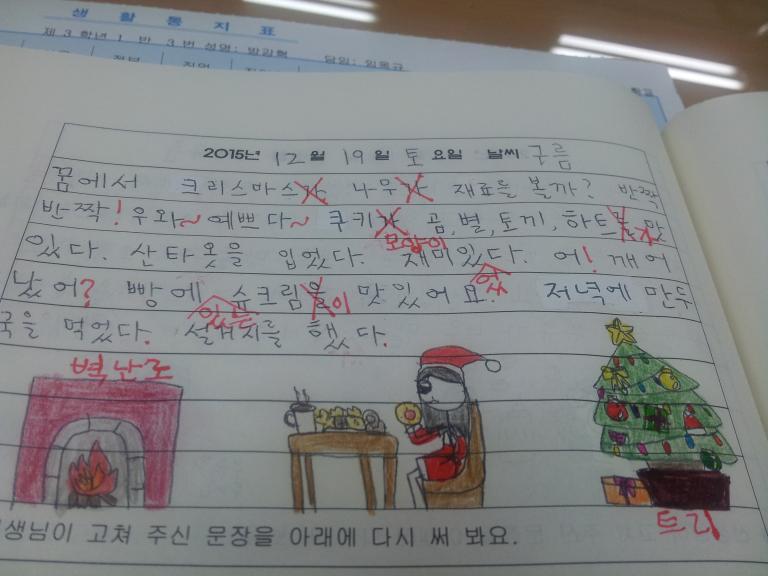 생활통지표
제 3 학년 1 반 3 번 성명:
담임:
2015년 12월 19일 토요일 날씨 구름
꿈에서 크리스마스가 나무가 재료를 볼까? 반짝
반짝! 우와~ 예쁘다~ 쿠키가 곰, 별, 토끼, 하트를 맛
모양이 가
있다. 산타옷을 입었다. 재미있다. 어! 깨어
났어? 빵에 슈크림을이 맛있어요. 저녁에 만두
있는 었
국을 먹었다. 설거지를 했다.
벽난로
트리
생님이 고쳐 주신 문장을 아래에 다시 써 봐요.